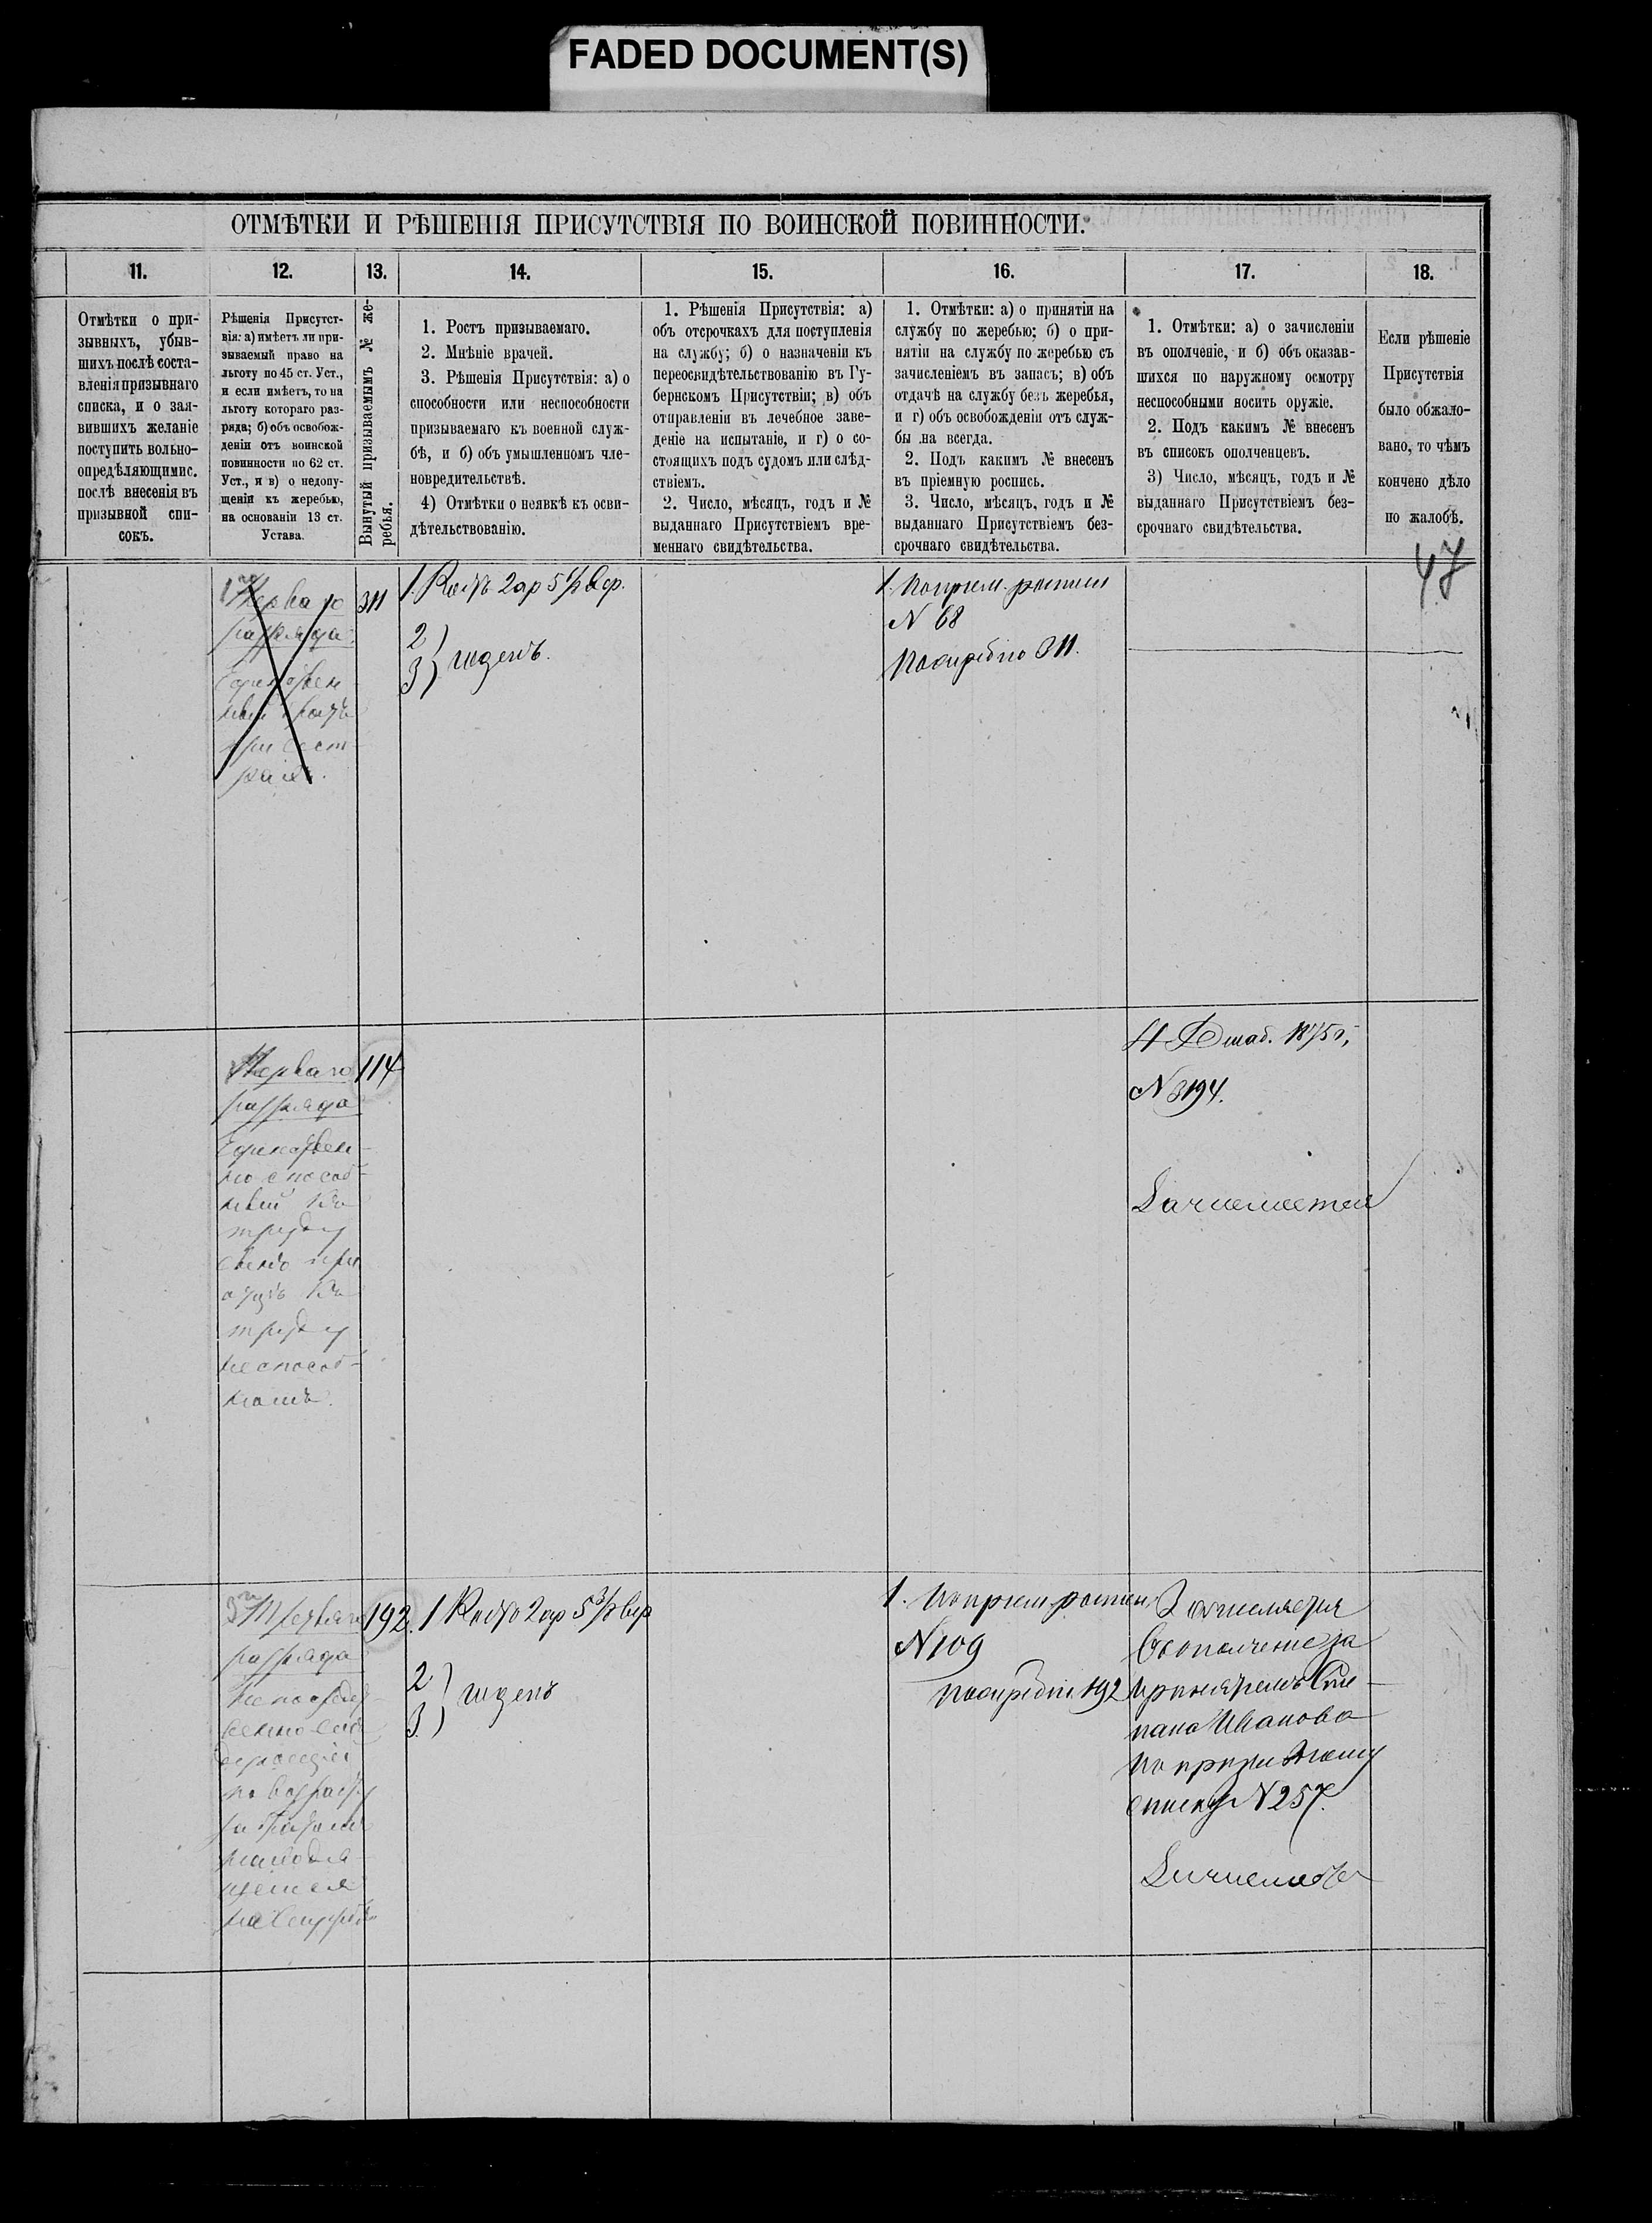 FADED DOCUMENT(S)
ОТМѢТКИ И РѢШЕНІЯ ПРИСУТСТВІЯ ПО ВОИНСКОЙ ПОВИННОСТИ.
11.
12.
13.
14.
15.
16.
17.
18.
Отмѣтки о при-
зывныхъ, убыв-
шихъ послѣ соста-
вленія призывнаго
списка, и о зая-
вившихъ желаніе
поступить вольно-
опредѣляющимис.
послѣ внесенія въ
призывной спи-
сокъ.
Рѣшенія Присутст-
вія: а) имѣетъ ли при-
зываемый право на
льготу по 45 ст. Уст.,
и если имѣетъ, то на
льготу котораго раз-
ряда; б) объ освобож-
деніи отъ воинской
повинности по 62 ст.
Уст., и в) о недопу-
щеніи къ жеребью,
на основаніи 13 ст.
Устава.
Вынутый призываемымъ № же-
ребья.
1. Ростъ призываемаго.
2. Мнѣніе врачей.
3. Рѣшенія Присутствія: а) о
способности или неспособности
призываемаго къ военной служ-
бѣ, и б) объ умышленномъ чле-
новредительствѣ.
4) Отмѣтки о неявкѣ къ осви-
дѣтельствованію.
1. Рѣшенія Присутствія: а)
объ отсрочкахъ для поступленія
на службу; б) о назначеніи къ
переосвидѣтельствованію въ Гу-
бернскомъ Присутствіи; в) объ
отправленіи въ лечебное заве-
деніе на испытаніе, и г) о со-
стоящихъ подъ судомъ или слѣд-
ствіемъ.
2. Число, мѣсяцъ, годъ и №
выданнаго Присутствіемъ вре-
меннаго свидѣтельства.
1. Отмѣтки: а) о принятіи на
службу по жеребью; б) о при-
нятіи на службу по жеребью съ
зачисленіемъ въ запасъ; в) объ
отдачѣ на службу безъ жеребья,
и г) объ освобожденіи отъ служ-
бы на всегда.
2. Подъ какимъ № внесенъ
въ пріемную роспись.
3. Число, мѣсяцъ, годъ и №
выданнаго Присутствіемъ без-
срочнаго свидѣтельства.
1. Отмѣтки: а) о зачисленіи
въ ополченіе, и б) объ оказав-
шихся по наружному осмотру
неспособными носить оружіе.
2. Подъ какимъ № внесенъ
въ списокъ ополченцевъ.
3) Число, мѣсяцъ, годъ и №
выданнаго Присутствіемъ без-
срочнаго свидѣтельства.
Если рѣшеніе
Присутствія
было обжало-
вано, то чѣмъ
кончено дѣло
по жалобѣ.
47
Перваго
разряда
311
1. Ростъ 2 ар 5 1/2 вер.
2
3) годенъ.
1. По прием. росписи
N 68
По жребію 311.
Перваго
разряда
Единствен-
но способ-
ный къ
труду
сынъ при
отцѣ къ
труду
неспособ-
номъ.
114
N 3194.
3 Третьяго
разряда
Непосредст-
венно слѣ-
дующій
по возрасту
192.
1 Ростъ 2 ар 5 3/8 вер
2.
3.) годенъ
1. По прием. росписи
N 109
По жребію 192
Зачисляется
въ ополченіе за
пріемъ Сте-
пана Иванова
по призывному
списку N 257.